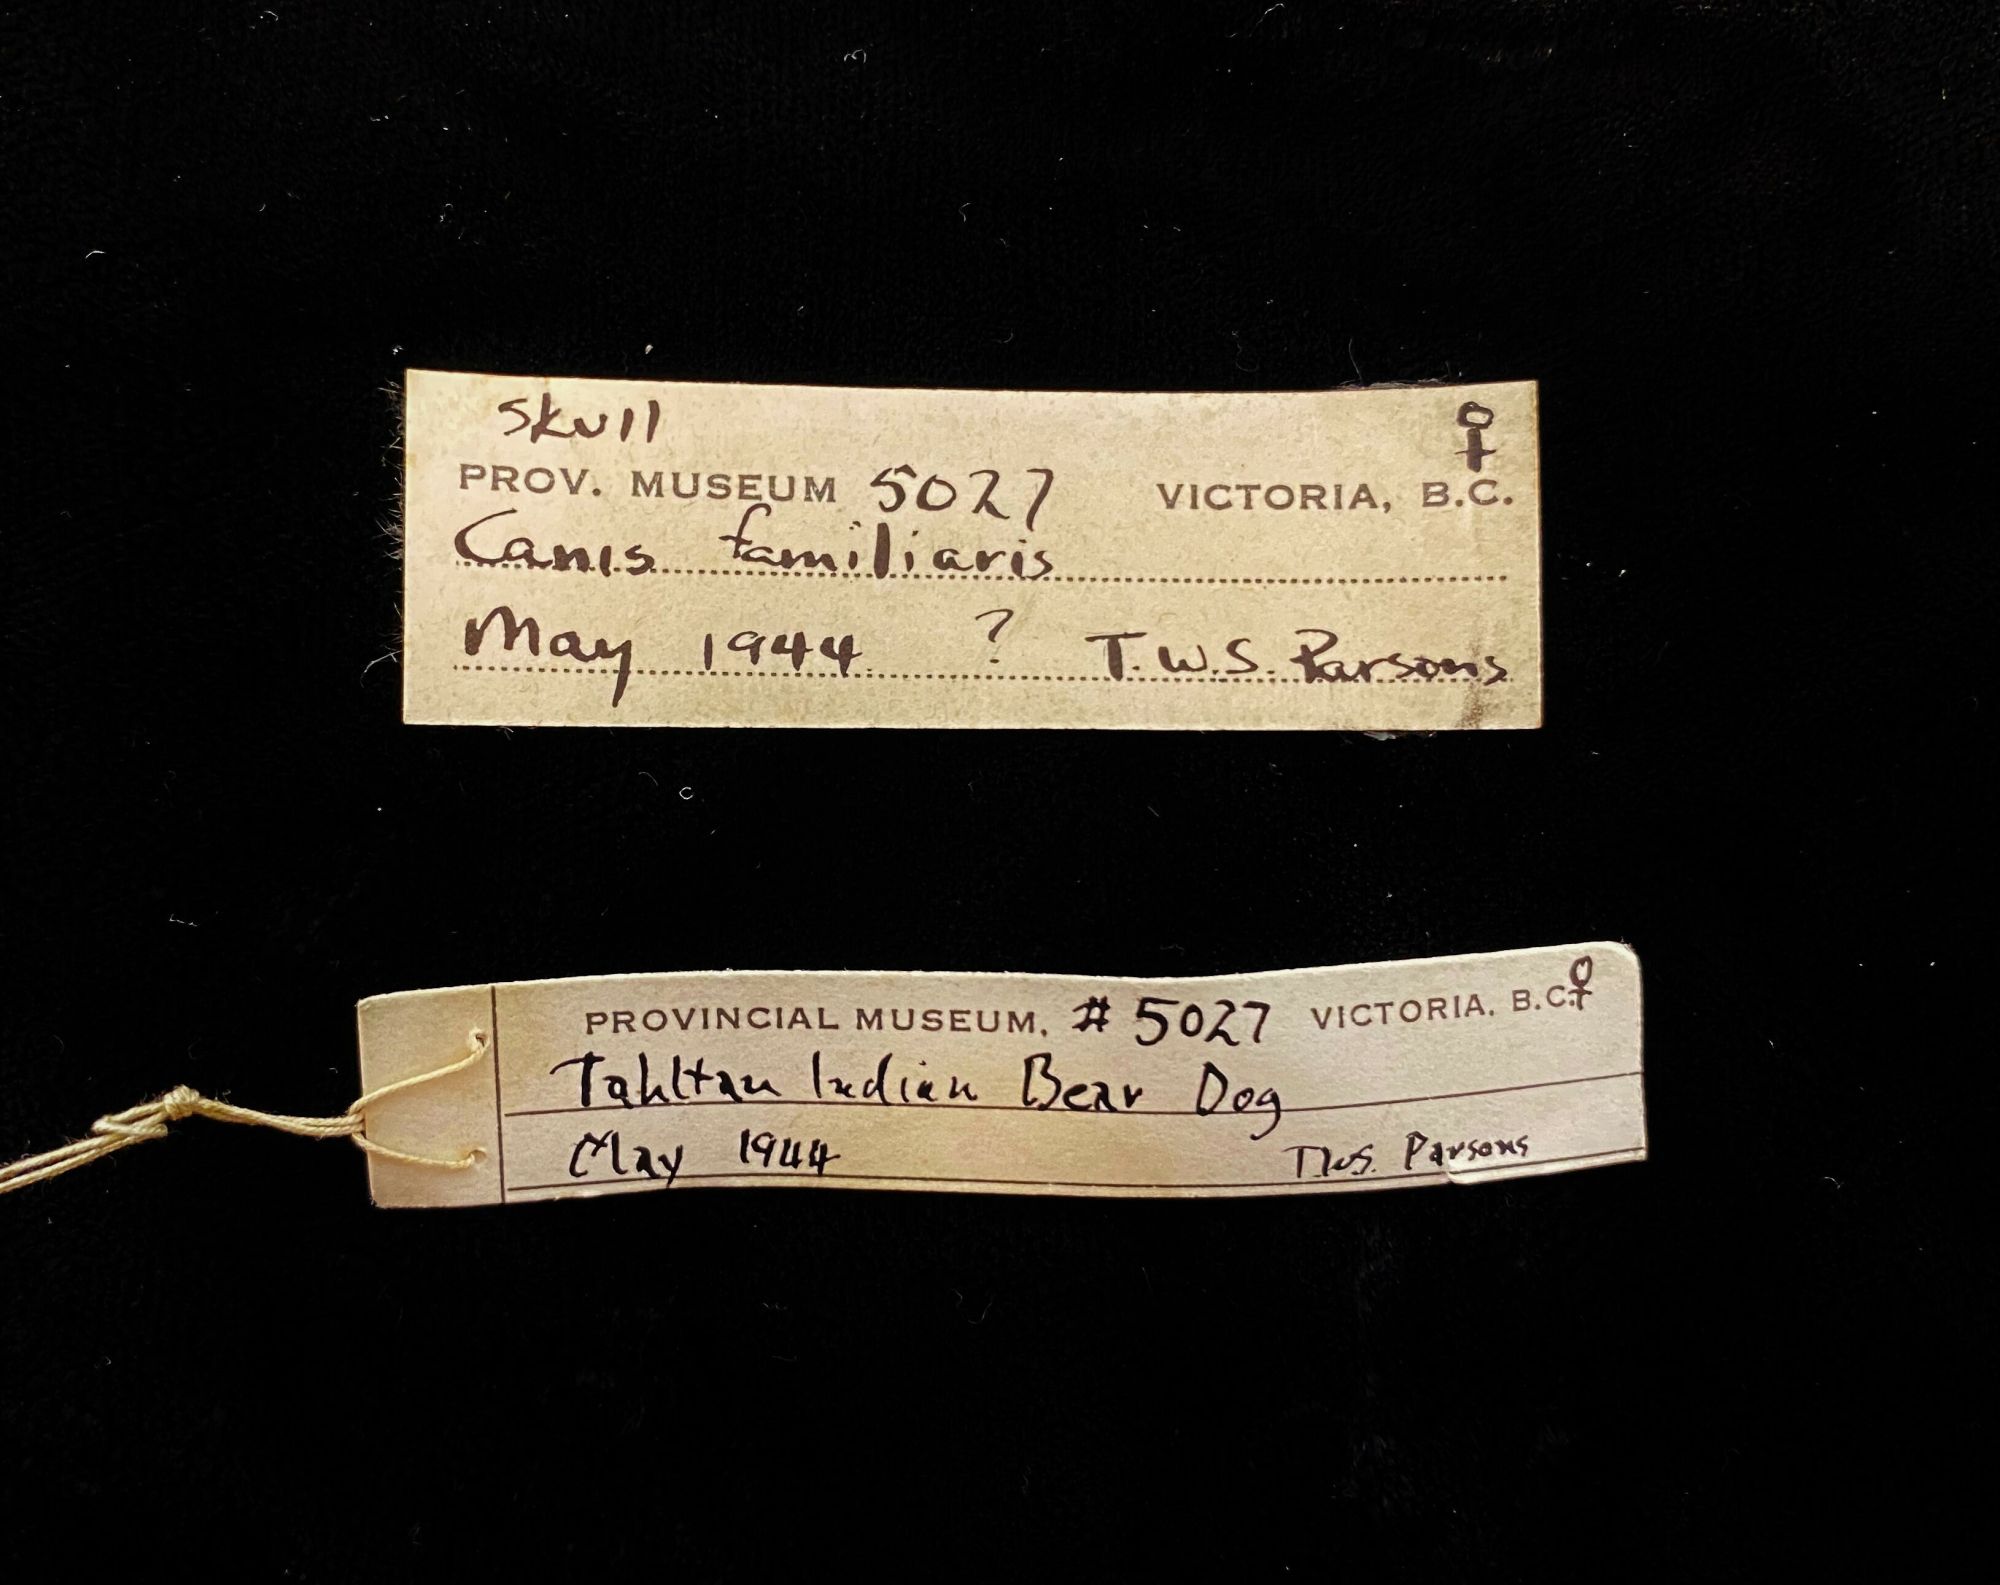 skull ♀
PROV. MUSEUM 5027 VICTORIA, B.C.
Canis familiaris
May 1944 ? T.W.S. Parsons
PROVINCIAL MUSEUM, # 5027 VICTORIA, B.C. ♀
Tahltan Indian Bear Dog
May 1944 T.W.S. Parsons